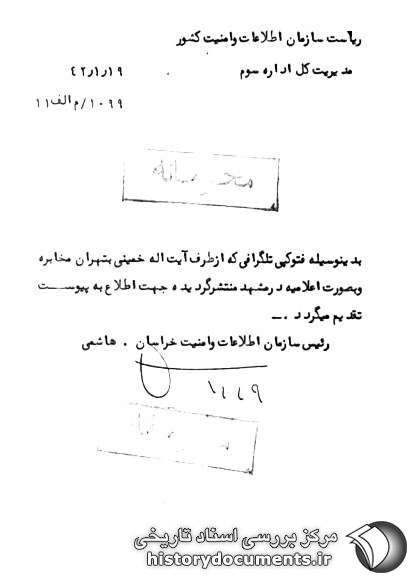 ریاست سازمان اطلاعات و امنیت کشور
مدیریت کل اداره سوم
۴۲/۱/۱۹
۱۰۹۹/م الف ۱۱
محرمانه
بدینوسیله فتوکپی تلگرافی که از طرف آیت اله خمینی بتهران مخابره
وبصورت اعلامیه در مشهد منتشر گردیده جهت اطلاع به پیوست
تقدیم میگردد .ـ
رئیس سازمان اطلاعات و امنیت خراسان . هاشمی
مرکز بررسی اسناد تاریخی
historydocuments.ir